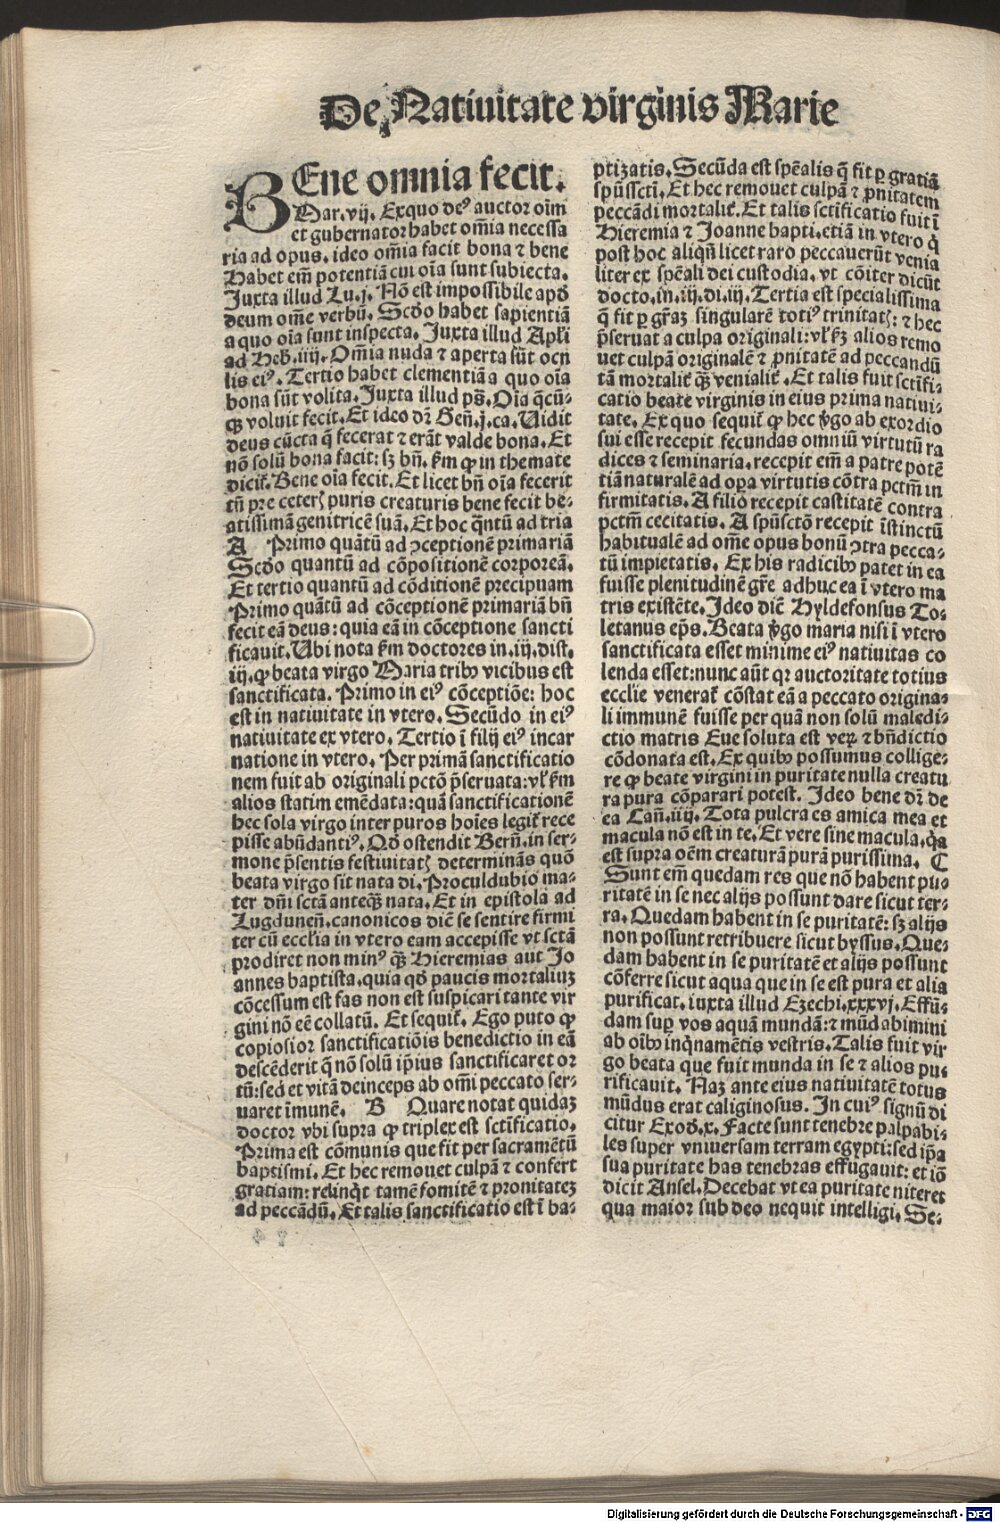 De Natiuitate virginis Marie
BEne omnia fecit.
Mar.vij. Exquo deꝰ auctor oīm
et gubernator habet om̄ia necessa
ria ad opus. ideo om̄ia facit bona ⁊ bene
Habet em̄ potentiā cui oīa sunt subiecta.
Juxta illud Lu.j. Nō est impossibile apd̄
deum om̄e verbū. Scd̄o habet sapientiā
a quo oīa sunt inspecta. Juxta illud Apl̄i
ad Heb̄.iiij. Om̄ia nuda ⁊ aperta sūt ocu
lis eiꝰ. Tertio habet clementiā a quo oīa
bona sūt volita. Juxta illud ps̄. Oīa q̄cū⸗
qꝫ voluit fecit. Et ideo dr̄ Gen̄.j.ca. Uidit
deus cūcta q̄ fecerat ⁊ erāt valde bona. Et
nō solū bona facit: sꝫ bn̄. km̄ ꝙ in themate
dicit̄. Bene oīa fecit. Et licet bn̄ oīa fecerit
tn̄ pre ceterꝭ puris creaturis bene fecit be⸗
atissimā genitricē suā. Et hoc q̄ntū ad tria
A Primo quātū ad ꝯceptionē primariā
Scd̄o quantū ad cōpositionē corporeā.
Et tertio quantū ad cōditionē precipuam
Primo quātū ad cōceptionē primariā bn̄
fecit eā deus: quia eā in cōceptione sancti
ficauit. Ubi nota km̄ doctores in.iij.dist.
iij. ꝙ beata virgo Maria tribꝰ vicibus est
sanctificata. Primo in eiꝰ cōceptiōe: hoc
est in natiuitate in vtero. Secūdo in eiꝰ
natiuitate ex vtero. Tertio ī filij eiꝰ incar
natione in vtero. Per primā sanctificatio
nem fuit ab originali pctō p̄seruata: vl̄ km̄
alios statim emēdata: quā sanctificationē
hec sola virgo inter puros hoīes legit̄ rece
pisse abūdantiꝰ. Qd̄ ostendit Bern̄. in ser⸗
mone p̄sentis festiuitatꝭ determinās quō
beata virgo sit nata di. Proculdubio ma⸗
ter dn̄i sctā anteqꝫ̄ nata. Et in epistola ad
Lugdunen̄. canonicos diċ se sentire firmi
ter cū eccl̄ia in vtero eam accepisse vt sctā
prodiret non minꝰ qꝫ̄ Hieremias aut Jo
annes baptista. quia qd̄ paucis mortaliuꝫ
cōcessum est fas non est suspicari tante vir
gini nō eē collatū. Et sequit̄. Ego puto ꝙ
copiosior sanctificatiōis benedictio in eā
descēderit q̄ nō solū ip̄ius sanctificaret or
tū: sed et vitā deinceps ab om̄i peccato ser⸗
uaret īmunē. B Quare notat quidaꝫ
doctor vbi supra ꝙ triplex est sctīficatio.
Prima est cōmunis que fit per sacramētū
baptismi. Et hec remouet culpā ⁊ confert
gratiam: relinq̄t tamē fomitē ⁊ pronitateꝫ
ad peccādū. Et talis sanctificatio est ī ba⸗
ptizatis. Secūda est spēalis q̄ fit ꝑ gratiā
spūssctī. Et hec remouet culpā ⁊ ꝓnitatem
peccādi mortalit̄. Et talis sctīficatio fuit ī
Hieremia ⁊ Joanne bapti. etiā in vtero q̄
post hoc aliqn̄ licet raro peccauerūt venia
liter ex spēali dei custodia. vt cōiter dicūt
docto. in.iij.di.iij. Tertia est specialissima
q̄ fit ꝑ gr̄aꝫ singularē totiꝰ trinitatꝭ: ⁊ hec
p̄seruat a culpa originali: vl̄ kꝫ alios remo
uet culpā originalē ⁊ ꝓnitatē ad peccandū
tā mortalit̄ qꝫ̄ venialit̄. Et talis fuit sctīfi⸗
catio beate virginis in eius prima natiui⸗
tate. Ex quo sequit̄ ꝙ hec v̄go ab exordio
sui esse recepit fecundas omniū virtutū ra
dices ⁊ seminaria. recepit em̄ a patre potē
tiā naturalē ad oꝑa virtutis cōtra pctm̄ in
firmitatis. A filio recepit castitatē contra
pctm̄ cecitatis. A spūsctō recepit īstinctū
habitualē ad om̄e opus bonū ꝯtra pecca⸗
tū impietatis. Ex his radicibꝰ patet in ea
fuisse plenitudinē gr̄e adhuc ea ī vtero ma
tris existēte. Ideo diċ Hyldefonsus To⸗
letanus ep̄s. Beata v̄go maria nisi ī vtero
sanctificata esset minime eiꝰ natiuitas co
lenda esset: nunc aūt qr auctoritate totius
ecclie venerat̄ cōstat eā a peccato origina⸗
li immunē fuisse per quā non solū maledi⸗
ctio matris Eue soluta est veꝝ ⁊ bn̄dictio
cōdonata est. Ex quibꝰ possumus collige⸗
re ꝙ beate virgini in puritate nulla creatu
ra pura cōparari potest. Ideo bene dr̄ de
ea Can̄.iiij. Tota pulcra es amica mea et
macula nō est in te. Et vere sine macula. q̄a
est supra oēm creaturā purā purissima. C
Sunt em̄ quedam res que nō habent pu⸗
ritatē in se nec alijs possunt dare sicut ter⸗
ra. Quedam habent in se puritatē: sꝫ alijs
non possunt retribuere sicut byssus. Que⸗
dam habent in se puritatē et alijs possunt
cōferre sicut aqua que in se est pura et alia
purificat. iuxta illud Ezechi.xxxvj. Effū⸗
dam suꝑ vos aquā mundā: ⁊ mūdabimini
ab oībꝰ inq̄namētis vestris. Talis fuit vir
go beata que fuit munda in se ⁊ alios pu⸗
rificauit. Naꝫ ante eius natiuitatē totus
mūdus erat caliginosus. In cuiꝰ signū di
citur Exod̄.x. Facte sunt tenebre palpabi⸗
les super vniuersam terram egypti: sed ip̄a
sua puritate has tenebras effugauit: et iō
dicit Ansel. Decebat vt ea puritate niteret
qua maior sub deo nequit intelligi. Se⸗
Digitalisierung gefördert durch die Deutsche Forschungsgemeinschaft - DFG